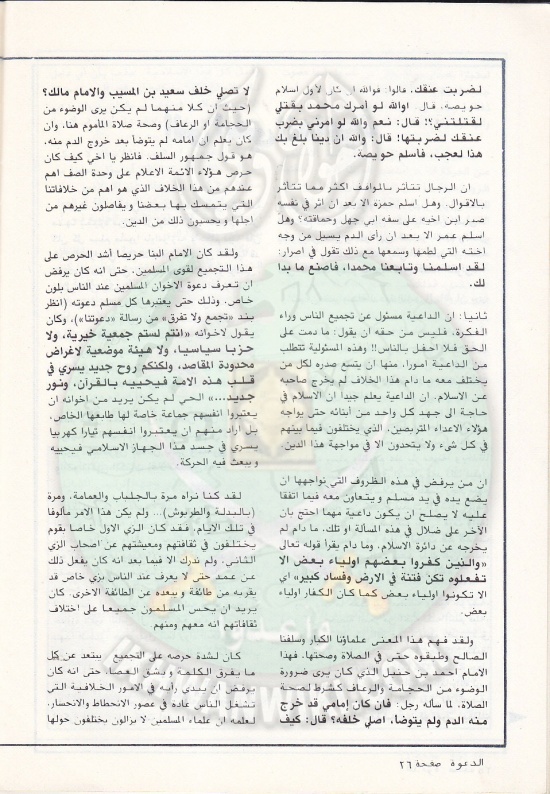 لضربت عنقك. قالوا: فوالله ان كان لأول اسلام
حويصه. قال اوالله لو أمرك محمد بقتلي
لقتلتني؟! قال: نعم والله لو امرني بضرب
عنقك لضربتها! قال: والله ان دينا بلغ بك
هذا لعجب، فأسلم حويصة.
ان الرجال تتأثر بالمواقف اكثر مما تتأثر
بالاقوال. وهل اسلم حمزة الا بعد ان اثر في نفسه
صبر ابن اخيه على سفه ابي جهل وحماقته؟ وهل
اسلم عمر الا بعد ان رأى الدم يسيل من وجه
اخته التي لطمها وسمعها مع ذلك تقول في اصرار:
لقد اسلمنا وتابعنا محمدا، فاصنع ما بدا
لك.
ثانيا: ان الداعية مسئول عن تجميع الناس وراء
الفكرة. فليس من حقه ان يقول: ما دمت على
الحق فلا احفل بالناس!! وهذه المسئولية تتطلب
من الداعية امورا، منها ان يتسع صدره لكل من
يختلف معه ما دام هذا الخلاف لم يخرج صاحبه
عن الاسلام. ان الداعية يعلم جيدا ان الاسلام في
حاجة الى جهد كل واحد من أبنائه حتى يواجه
هؤلاء الاعداء المتربصين، الذي يختلفون فيما بينهم
في كل شىء ولا يتحدون الا في مواجهة هذا الدين.
ان من يرفض في هذه الظروف التي نواجهها ان
يضع يده في يد مسلم ويتعاون معه فيما اتفقا
عليه لا يصلح ان يكون داعية مهما احتج بان
الآخر على ضلال في هذه المسألة او تلك، ما دام لم
يخرجه عن دائرة الاسلام، وما دام يقرأ قوله تعالى
«والذين كفروا بعضهم اولياء بعض الا
تفعلوه تكن فتنة في الارض وفساد كبير» اي
الا تكونوا اولياء بعض كما كان الكفار اولياء
بعض.
ولقد فهم هذا المعنى علماؤنا الكبار وسلفنا
الصالح وطبقوه حتى في الصلاة وصحتها. فهذا
الامام احمد بن حنبل الذي كان يرى ضرورة
الوضوء من الحجامة والرعاف كشرط لصحة
الصلاة، لما سأله رجل: فان كان إمامي قد خرج
منه الدم ولم يتوضأ، اصلي خلفه؟ قال: كيف
لا تصلي خلف سعيد بن المسيب والامام مالك؟
(حيث ان كلا منهما لم يكن يرى الوضوء من
الحجامة او الرعاف) وصحة صلاة المأموم هنا، وان
كان يعلم ان امامه لم يتوضأ بعد خروج الدم منه،
هو قول جمهور السلف. فانظر يا اخي كيف كان
حرص هؤلاء الائمة الاعلام على وحدة الصف اهم
عندهم من هذا الخلاف الذي هو اهم من خلافاتنا
التي يتمسك بها بعضنا ويفاصلون غيرهم من
اجلها ويحسبون ذلك من الدين.
ولقد كان الامام البنا حريصا أشد الحرص على
هذا التجميع لقوى المسلمين. حتى انه كان يرفض
ان تعرف دعوة الاخوان المسلمين عند الناس بلون
خاص. وذلك حتى يعتبرها كل مسلم دعوته (انظر
بند «تجمع ولا تفرق» من رسالة «دعوتنا»)، وكان
يقول لاخوانه «انتم لستم جمعية خيرية، ولا
حزبا سياسيا، ولا هيئة موضعية لاغراض
محدودة المقاصد، ولكنكم روح جديد يسري في
قلب هذه الامة فيحييه بالقرآن، ونور
جديد...» الخي لم يكن يريد من إخوانه ان
يعتبروا انفسهم جماعة خاصة لها طابعها الخاص،
بل اراد منهم ان يعتبروا انفسهم تيارا كهربيا
يسري في جسد هذا الجهاز الاسلامي فيحييه
ويبعث فيه الحركة.
لقد كنا نراه مرة بالجلباب والعمامة، ومرة
(بالبدلة والطربوش)... ولم يكن هذا الامر مألوفا
في تلك الايام، فقد كان الزي الاول خاصا بقوم
يختلفون في ثقافتهم ومعيشتهم عن اصحاب الزي
الثاني. ولم ندرك الا فيما بعد انه كان يفعل ذلك
عن عمد حتى لا يعرف عند الناس بزي خاص قد
يقربه من طائفة ويبعده عن الطائفة الاخرى. كان
يريد ان يحس المسلمون جميعا على اختلاف
ثقافاتهم انه معهم ومنهم.
كان لشدة حرصه على التجميع يبتعد عن كل
ما يفرق الكلمة ويشق العصا. حتى انه كان
يرفض ان يبدي رأيه في الامور الخلافية التي
تشغل الناس عادة في عصور الانحطاط والانحسار.
لعلمه ان علماء المسلمين لا يزالون يختلفون حولها
الدعوة صفحة ٢٦